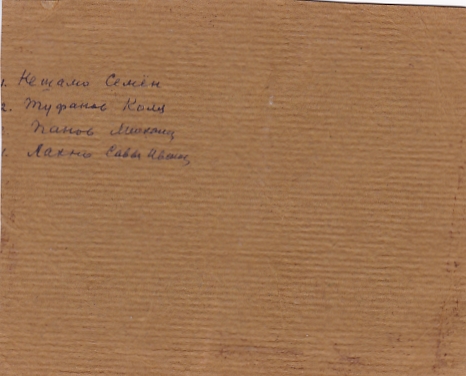 1. Нешамо Семён
2. Туфанов Коля
Панов Миша
Лахно Савва